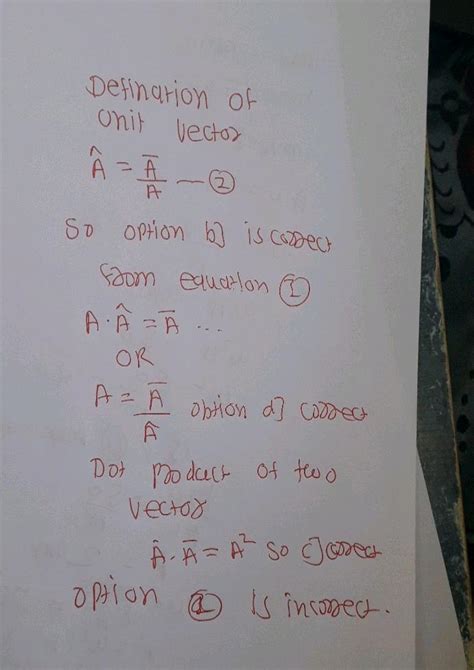 Defination of
unit vector
Â = A̅/A — ②
So option b] is correct
from equation ①
A·Â = A̅ ...
OR
A = A̅/Â option d] correct
Dot product of two
vector
A̅·A̅ = A² so c] correct
option ① is incorrect.